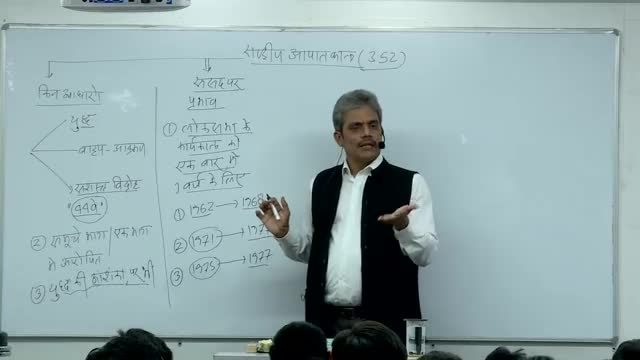 राष्ट्रीय आपातकाल (352)
किन आधारों
युद्ध
बाह्य-आक्रमण
सशस्त्र विद्रोह
44वें
② समूचे भारत / एक भाग
में आरोपित
③ युद्ध की आशंका, पर भी
संसद पर
प्रभाव
① लोकसभा के
कार्यकाल को
एक बार में
1 वर्ष के लिए
① 1962 → 1968
② 1971 →
③ 1975 → 1977